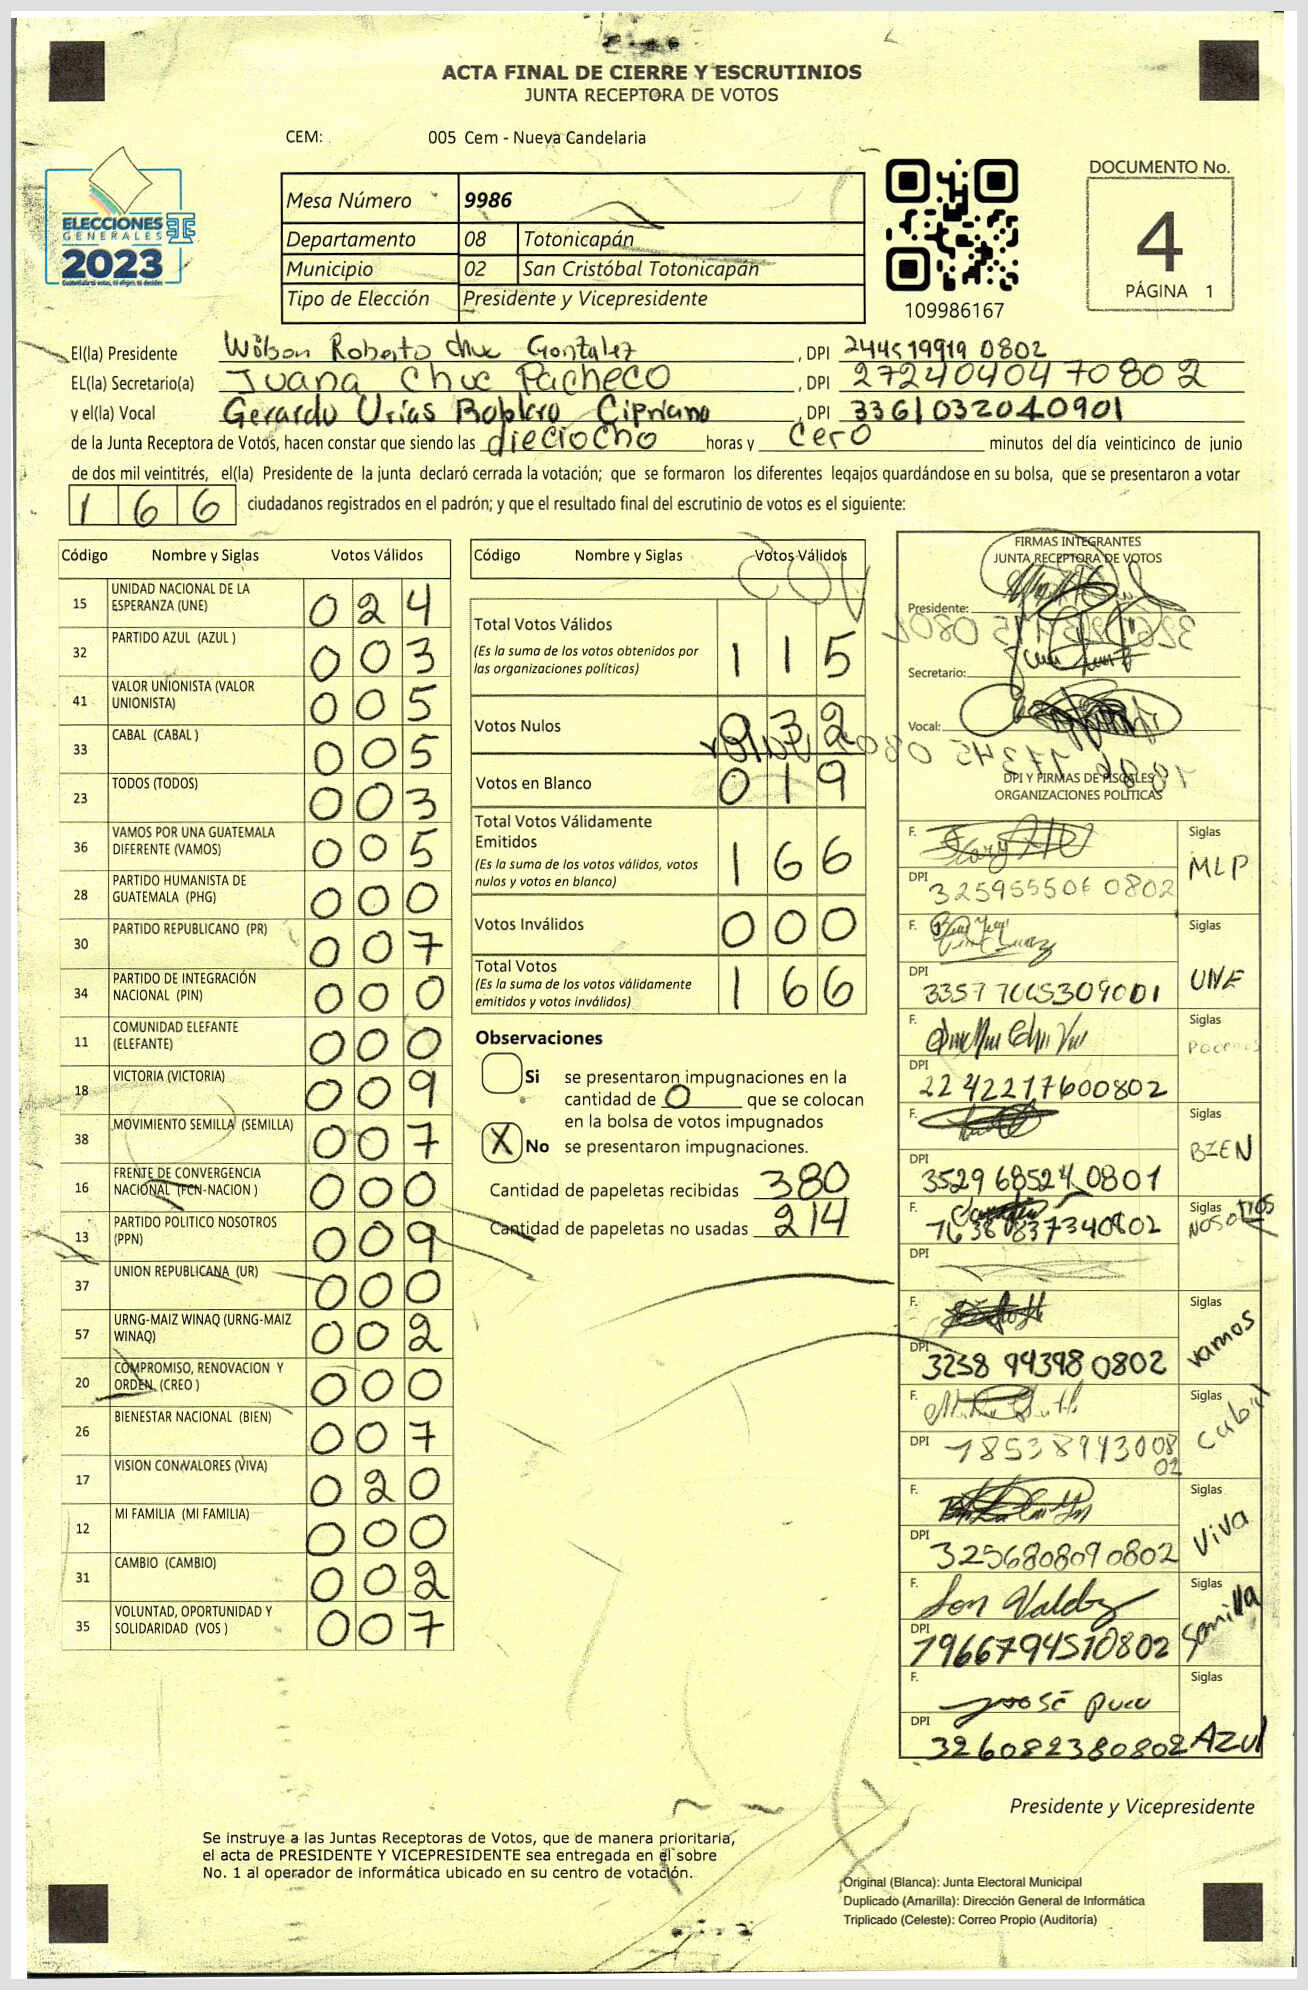 ACTA FINAL DE CIERRE Y ESCRUTINIOS
JUNTA RECEPTORA DE VOTOS
CEM: 005 Cem - Nueva Candelaria
ELECCIONES
GENERALES
2023
Mesa Número 9986
Departamento 08 Totonicapán
Municipio 02 San Cristóbal Totonicapán
Tipo de Elección Presidente y Vicepresidente
109986167
DOCUMENTO No.
4
PÁGINA 1
El(la) Presidente Wilson Roberto Chuc Gontzalez , DPI 244519919 0802
EL(la) Secretario(a) Juana Chuc Pacheco , DPI 2724040470802
y el(la) Vocal Gerardo Urías Roblero Cipriano , DPI 3361032040901
de la Junta Receptora de Votos, hacen constar que siendo las dieciocho horas y cero minutos del día veinticinco de junio
de dos mil veintitrés, el(la) Presidente de la junta declaró cerrada la votación; que se formaron los diferentes legajos guardándose en su bolsa, que se presentaron a votar
166 ciudadanos registrados en el padrón; y que el resultado final del escrutinio de votos es el siguiente:
Código Nombre y Siglas Votos Válidos
15 UNIDAD NACIONAL DE LA ESPERANZA (UNE) 024
32 PARTIDO AZUL (AZUL ) 003
41 VALOR UNIONISTA (VALOR UNIONISTA) 005
33 CABAL (CABAL ) 005
23 TODOS (TODOS) 003
36 VAMOS POR UNA GUATEMALA DIFERENTE (VAMOS) 005
28 PARTIDO HUMANISTA DE GUATEMALA (PHG) 000
30 PARTIDO REPUBLICANO (PR) 007
34 PARTIDO DE INTEGRACIÓN NACIONAL (PIN) 000
11 COMUNIDAD ELEFANTE (ELEFANTE) 000
18 VICTORIA (VICTORIA) 009
38 MOVIMIENTO SEMILLA (SEMILLA) 007
16 FRENTE DE CONVERGENCIA NACIONAL (FCN-NACION ) 000
13 PARTIDO POLITICO NOSOTROS (PPN) 009
37 UNION REPUBLICANA (UR) 000
57 URNG-MAIZ WINAQ (URNG-MAIZ WINAQ) 002
20 COMPROMISO, RENOVACION Y ORDEN (CREO ) 000
26 BIENESTAR NACIONAL (BIEN) 007
17 VISION CON VALORES (VIVA) 020
12 MI FAMILIA (MI FAMILIA) 000
31 CAMBIO (CAMBIO) 002
35 VOLUNTAD, OPORTUNIDAD Y SOLIDARIDAD (VOS ) 007
Código Nombre y Siglas Votos Válidos
Total Votos Válidos 115
(Es la suma de los votos obtenidos por
las organizaciones políticas)
Votos Nulos 032
Votos en Blanco 019
Total Votos Válidamente
Emitidos 166
(Es la suma de los votos válidos, votos
nulos y votos en blanco)
Votos Inválidos 000
Total Votos 166
(Es la suma de los votos válidamente
emitidos y votos inválidos)
Observaciones
Si se presentaron impugnaciones en la
cantidad de 0 que se colocan
en la bolsa de votos impugnados
X No se presentaron impugnaciones.
Cantidad de papeletas recibidas 380
Cantidad de papeletas no usadas 214
FIRMAS INTEGRANTES
JUNTA RECEPTORA DE VOTOS
Presidente:
Secretario:
Vocal:
DPI Y FIRMAS DE FISCALES
ORGANIZACIONES POLÍTICAS
F. Siglas MLP
DPI 325955506 0802
F. Siglas UNE
DPI
F. Siglas
DPI 2242217600802
F. Siglas BIEN
DPI 3529 68524 0801
F. Siglas NOSOTROS
DPI
F. Siglas vamos
DPI 3238 94398 0802
F. Siglas Cabal
DPI 1853894300802
F. Siglas Viva
DPI 3256808090802
F. Siglas Semilla
DPI 1966794510802
F. José Puac Siglas Azul
DPI 326082380802
Presidente y Vicepresidente
Se instruye a las Juntas Receptoras de Votos, que de manera prioritaria,
el acta de PRESIDENTE Y VICEPRESIDENTE sea entregada en el sobre
No. 1 al operador de informática ubicado en su centro de votación.
Original (Blanca): Junta Electoral Municipal
Duplicado (Amarilla): Dirección General de Informática
Triplicado (Celeste): Correo Propio (Auditoría)